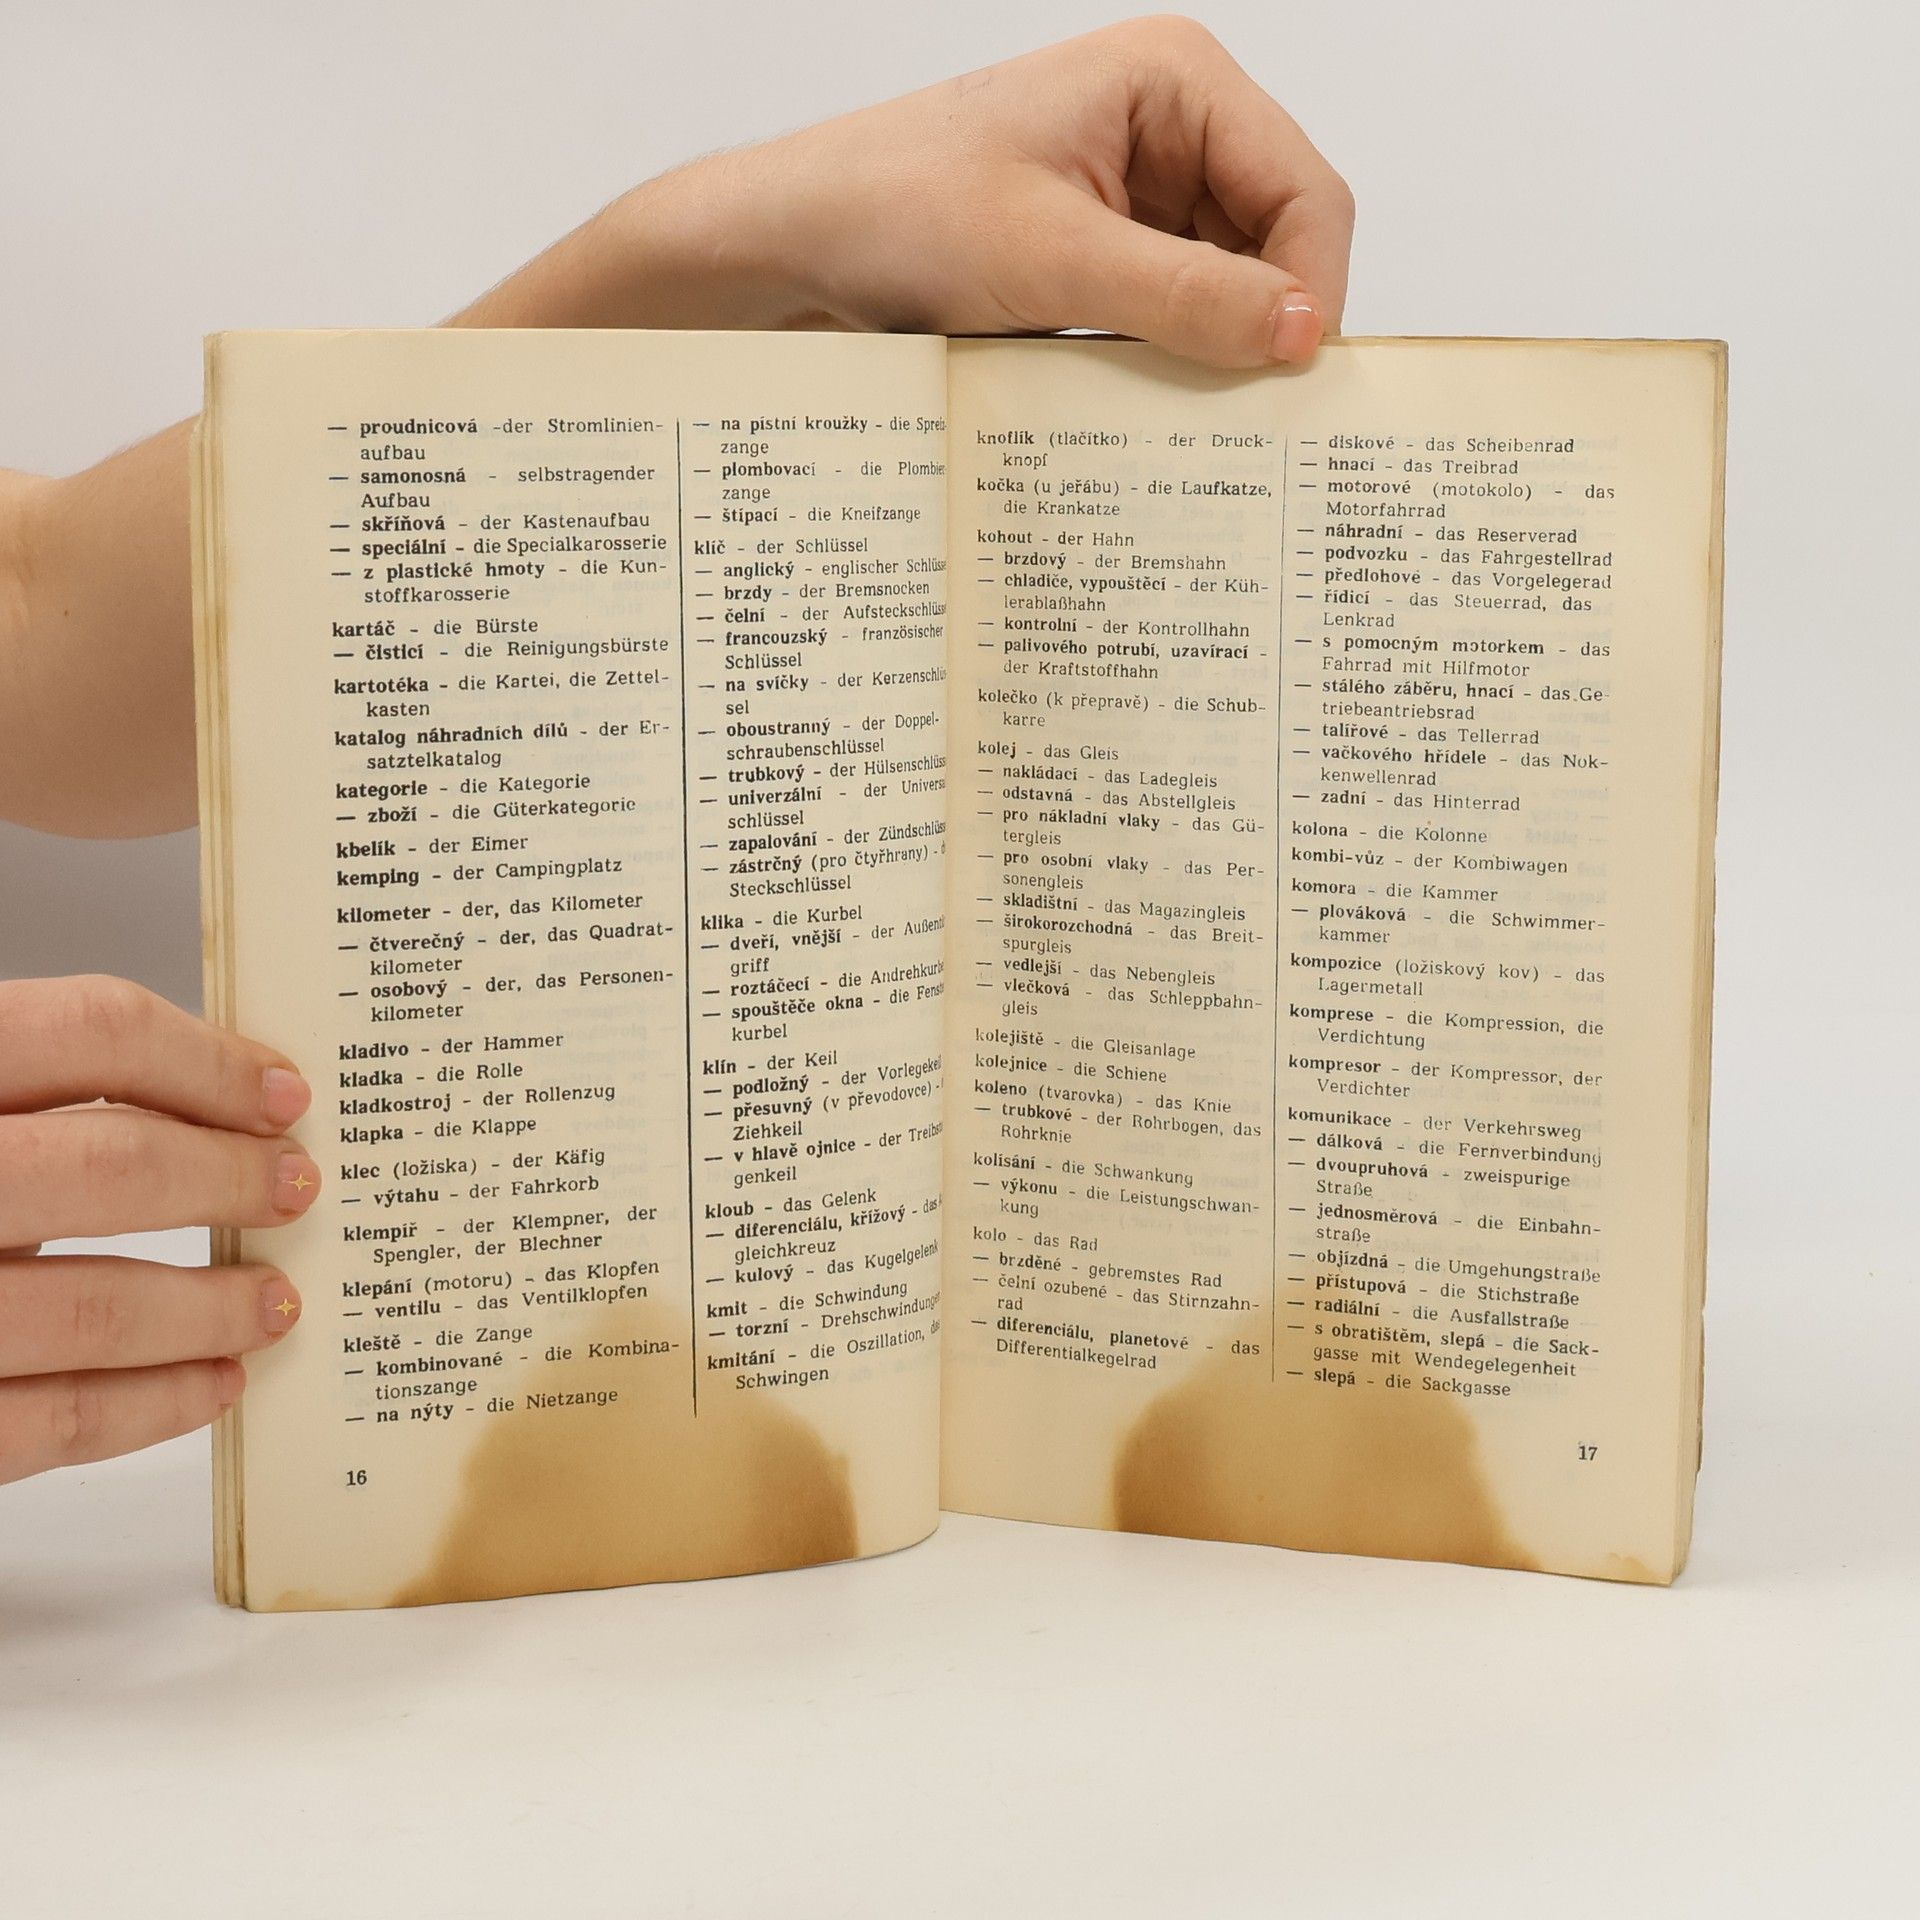 — proudnicová -der Stromlinien-
aufbau
— samonosná - selbstragender
Aufbau
— skříňová - der Kastenaufbau
— speciální - die Specialkarosserie
— z plastické hmoty - die Kun-
stoffkarosserie
kartáč - die Bürste
— čisticí - die Reinigungsbürste
kartotéka - die Kartei, die Zettel-
kasten
katalog náhradních dílů - der Er-
satztelkatalog
kategorie - die Kategorie
— zboží - die Güterkategorie
kbelík - der Eimer
kemping - der Campingplatz
kilometer - der, das Kilometer
— čtverečný - der, das Quadrat-
kilometer
— osobový - der, das Personen-
kilometer
kladivo - der Hammer
kladka - die Rolle
kladkostroj - der Rollenzug
klapka - die Klappe
klec (ložiska) - der Käfig
— výtahu - der Fahrkorb
klempíř - der Klempner, der
Spengler, der Blechner
klepání (motoru) - das Klopfen
— ventilu - das Ventilklopfen
kleště - die Zange
— kombinované - die Kombina-
tionszange
— na nýty - die Nietzange
16
— na pístní kroužky - die
zange
— plombovací - die Plombier-
zange
— štípací - die Kneifzange
klíč - der Schlüssel
— anglický - englischer
— brzdy - der Bremsnocken
— čelní - der
— francouzský - französischer
Schlüssel
— na svíčky - der
sel
— oboustranný - der Doppel-
schraubenschlüssel
— trubkový - der
— univerzální - der
schlüssel
— zapalování - der
— zástrčný (pro čtyřhrany) -
Steckschlüssel
klika - die Kurbel
— dveří, vnější - der
griff
— roztáčecí - die
— spouštěče okna - die
kurbel
klín - der Keil
— podložný - der
— přesuvný (v převodovce) -
Ziehkeil
— v hlavě ojnice - der
genkeil
kloub - das Gelenk
— diferenciálu, křížový - das
gleichkreuz
— kulový - das Kugelgelenk
kmit - die Schwindung
— torzní - Drehschwindungen
kmitání - die Oszillation, das
Schwingen
knoflík (tlačítko) - der Druck-
knopf
kočka (u jeřábu) - die Laufkatze,
die Krankatze
kohout - der Hahn
— brzdový - der Bremshahn
— chladiče, vypouštěcí - der Küh-
lerablaßhahn
— kontrolní - der Kontrollhahn
— palivového potrubí, uzavírací -
der Kraftstoffhahn
kolečko (k přepravě) - die Schub-
karre
kolej - das Gleis
— nakládací - das Ladegleis
— odstavná - das Abstellgleis
— pro nákladní vlaky - das Gü-
tergleis
— pro osobní vlaky - das Per-
sonengleis
— skladištní - das Magazingleis
— širokorozchodná - das Breit-
spurgleis
— vedlejší - das Nebengleis
— vlečková - das Schleppbahn-
gleis
kolejiště - die Gleisanlage
kolejnice - die Schiene
koleno (tvarovka) - das Knie
— trubkové - der Rohrbogen, das
Rohrknie
kolísání - die Schwankung
— výkonu - die Leistungschwan-
kung
kolo - das Rad
— brzděné - gebremstes Rad
— čelní ozubené - das Stirnzahn-
rad
— diferenciálu, planetové - das
Differentialkegelrad
— diskové - das Scheibenrad
— hnací - das Treibrad
— motorové (motokolo) - das
Motorfahrrad
— náhradní - das Reserverad
— podvozku - das Fahrgestellrad
— předlohové - das Vorgelegerad
— řídicí - das Steuerrad, das
Lenkrad
— s pomocným motorkem - das
Fahrrad mit Hilfmotor
— stálého záběru, hnací - das Ge-
triebeantriebsrad
— talířové - das Tellerrad
— vačkového hřídele - das Nok-
kenwellenrad
— zadní - das Hinterrad
kolona - die Kolonne
kombi-vůz - der Kombiwagen
komora - die Kammer
— plováková - die Schwimmer-
kammer
kompozice (ložiskový kov) - das
Lagermetall
komprese - die Kompression, die
Verdichtung
kompresor - der Kompressor, der
Verdichter
komunikace - der Verkehrsweg
— dálková - die Fernverbindung
— dvoupruhová - zweispurige
Straße
— jednosměrová - die Einbahn-
straße
— objízdná - die Umgehungstraße
— přístupová - die Stichstraße
— radiální - die Ausfallstraße
— s obratištěm, slepá - die Sack-
gasse mit Wendegelegenheit
— slepá - die Sackgasse
17